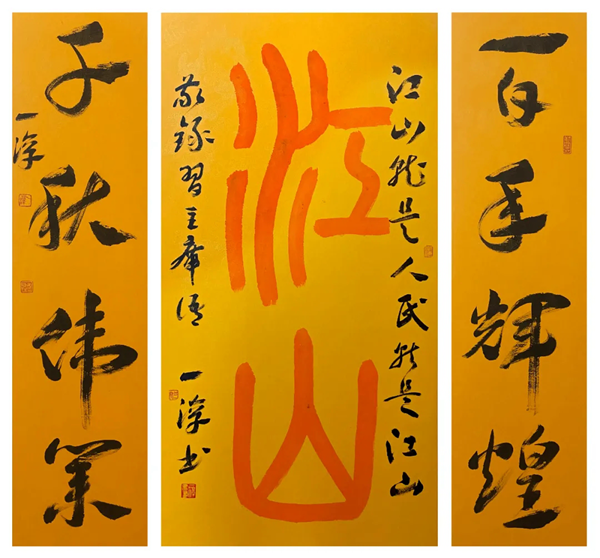 百年辉煌
江山就是人民就是江山
江山
敬録習主席语
一 书
千秋伟業
一